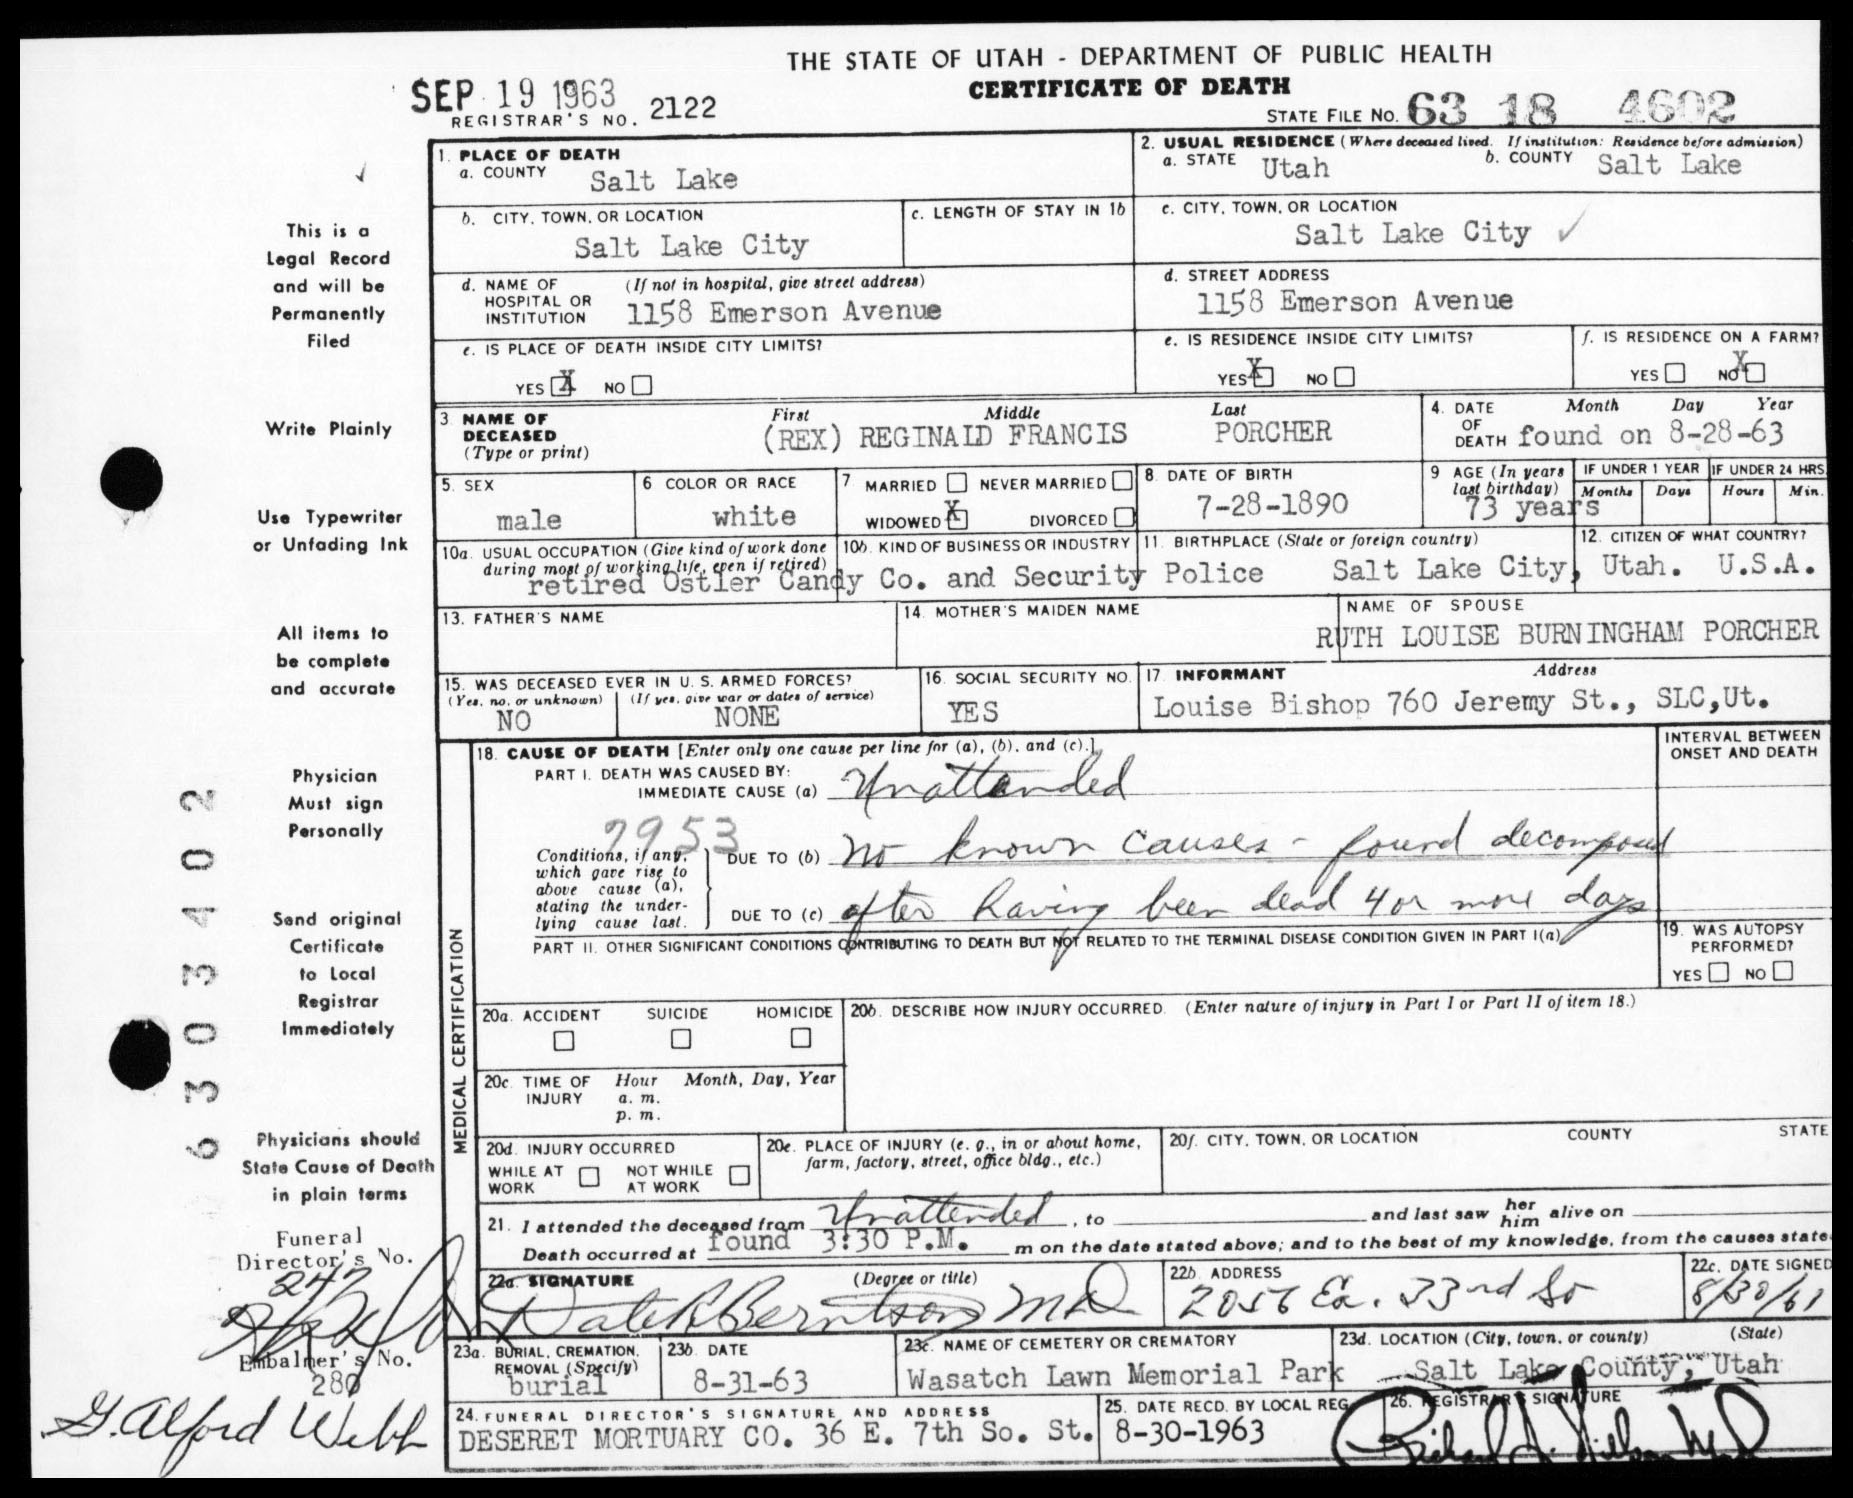 THE STATE OF UTAH - DEPARTMENT OF PUBLIC HEALTH
CERTIFICATE OF DEATH
SEP 19 1963
REGISTRAR'S NO. 2122
STATE FILE NO. 63 18 4602
1. PLACE OF DEATH
a. COUNTY Salt Lake
2. USUAL RESIDENCE (Where deceased lived. If institution: Residence before admission)
a. STATE Utah b. COUNTY Salt Lake
b. CITY, TOWN, OR LOCATION
Salt Lake City
c. LENGTH OF STAY IN 1b
c. CITY, TOWN, OR LOCATION
Salt Lake City ✓
d. NAME OF HOSPITAL OR INSTITUTION (If not in hospital, give street address)
1158 Emerson Avenue
d. STREET ADDRESS
1158 Emerson Avenue
e. IS PLACE OF DEATH INSIDE CITY LIMITS?
YES X NO
e. IS RESIDENCE INSIDE CITY LIMITS?
YES X NO
f. IS RESIDENCE ON A FARM?
YES NO X
3 NAME OF DECEASED (Type or print)
First Middle Last
(REX) REGINALD FRANCIS PORCHER
4. DATE OF DEATH Month Day Year
found on 8-28-63
5. SEX
male
6 COLOR OR RACE
white
7 MARRIED NEVER MARRIED
WIDOWED X DIVORCED
8. DATE OF BIRTH
7-28-1890
9 AGE (In years last birthday)
73 years
IF UNDER 1 YEAR
Months Days
IF UNDER 24 HRS.
Hours Min.
10a. USUAL OCCUPATION (Give kind of work done during most of working life, even if retired)
10b. KIND OF BUSINESS OR INDUSTRY
retired Ostler Candy Co. and Security Police
11. BIRTHPLACE (State or foreign country)
Salt Lake City, Utah.
12. CITIZEN OF WHAT COUNTRY?
U.S.A.
13. FATHER'S NAME
14. MOTHER'S MAIDEN NAME
NAME OF SPOUSE
RUTH LOUISE BURNINGHAM PORCHER
15. WAS DECEASED EVER IN U. S. ARMED FORCES?
(Yes, no, or unknown) (If yes, give war or dates of service)
NO NONE
16. SOCIAL SECURITY NO.
YES
17. INFORMANT Address
Louise Bishop 760 Jeremy St., SLC,Ut.
MEDICAL CERTIFICATION
18. CAUSE OF DEATH [Enter only one cause per line for (a), (b), and (c).]
INTERVAL BETWEEN ONSET AND DEATH
PART I. DEATH WAS CAUSED BY:
IMMEDIATE CAUSE (a) Unattended
7953
Conditions, if any, which gave rise to above cause (a), stating the underlying cause last.
DUE TO (b) No known causes - found decomposed
DUE TO (c) after having been dead 4 or more days
PART II. OTHER SIGNIFICANT CONDITIONS CONTRIBUTING TO DEATH BUT NOT RELATED TO THE TERMINAL DISEASE CONDITION GIVEN IN PART I(a)
19. WAS AUTOPSY PERFORMED?
YES NO
20a. ACCIDENT SUICIDE HOMICIDE
20b. DESCRIBE HOW INJURY OCCURRED. (Enter nature of injury in Part I or Part II of item 18.)
20c. TIME OF INJURY Hour Month, Day, Year
a. m.
p. m.
20d. INJURY OCCURRED
WHILE AT WORK NOT WHILE AT WORK
20e. PLACE OF INJURY (e. g., in or about home, farm, factory, street, office bldg., etc.)
20f. CITY, TOWN, OR LOCATION COUNTY STATE
21. I attended the deceased from Unattended, to and last saw her him alive on
Death occurred at found 3:30 P.M. m on the date stated above; and to the best of my knowledge, from the causes state
22a. SIGNATURE (Degree or title)
Dale R Berntson MD
22b. ADDRESS
2056 Ea. 33rd So
22c. DATE SIGNED
8/30/61
23a. BURIAL, CREMATION, REMOVAL (Specify)
burial
23b. DATE
8-31-63
23c. NAME OF CEMETERY OR CREMATORY
Wasatch Lawn Memorial Park
23d. LOCATION (City, town, or county) (State)
Salt Lake County, Utah
24. FUNERAL DIRECTOR'S SIGNATURE AND ADDRESS
DESERET MORTUARY CO. 36 E. 7th So. St.
25. DATE RECD. BY LOCAL REG.
8-30-1963
26. REGISTRAR'S SIGNATURE
This is a
Legal Record
and will be
Permanently
Filed
Write Plainly
Use Typewriter
or Unfading Ink
All items to
be complete
and accurate
Physician
Must sign
Personally
Send original
Certificate
to Local
Registrar
Immediately
Physicians should
State Cause of Death
in plain terms
6303402
Funeral
Director's No.
247
Embalmer's No.
280
G. Alford Webb